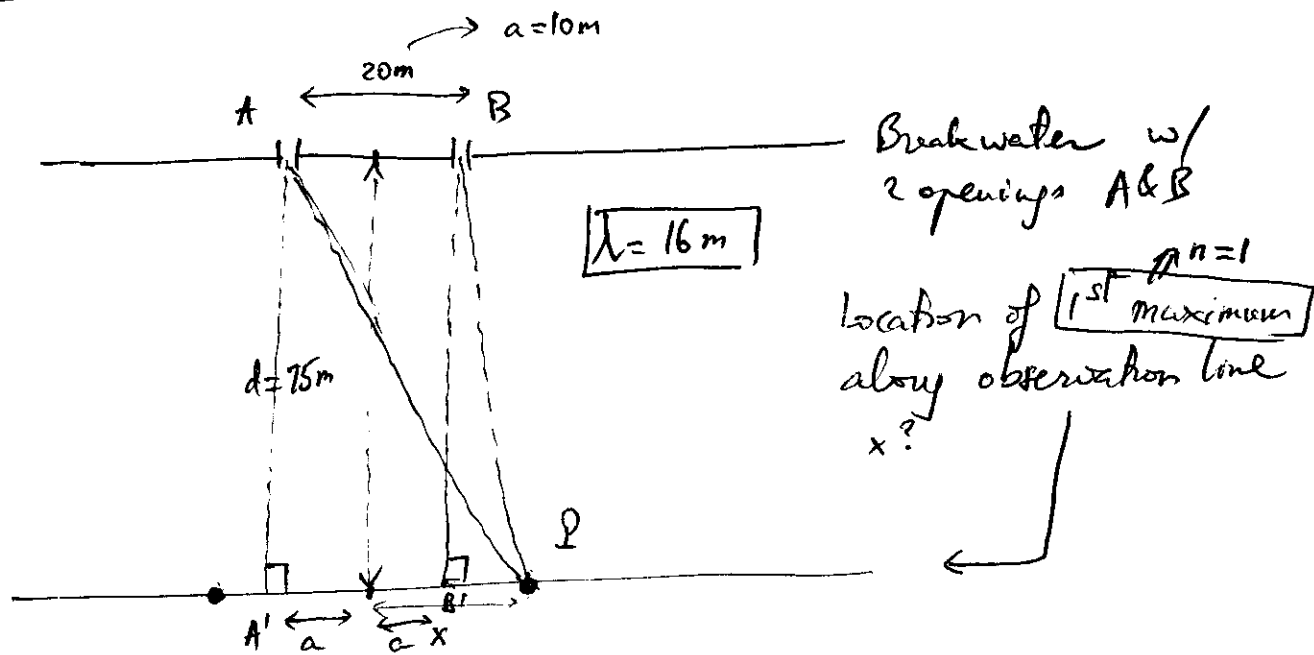 a = 10m
20m
A B
Breakwater w/
2 openings A&B
λ = 16 m
n = 1
Location of 1st maximum
along observation line
x?
d = 75m
P
A' a a x B'